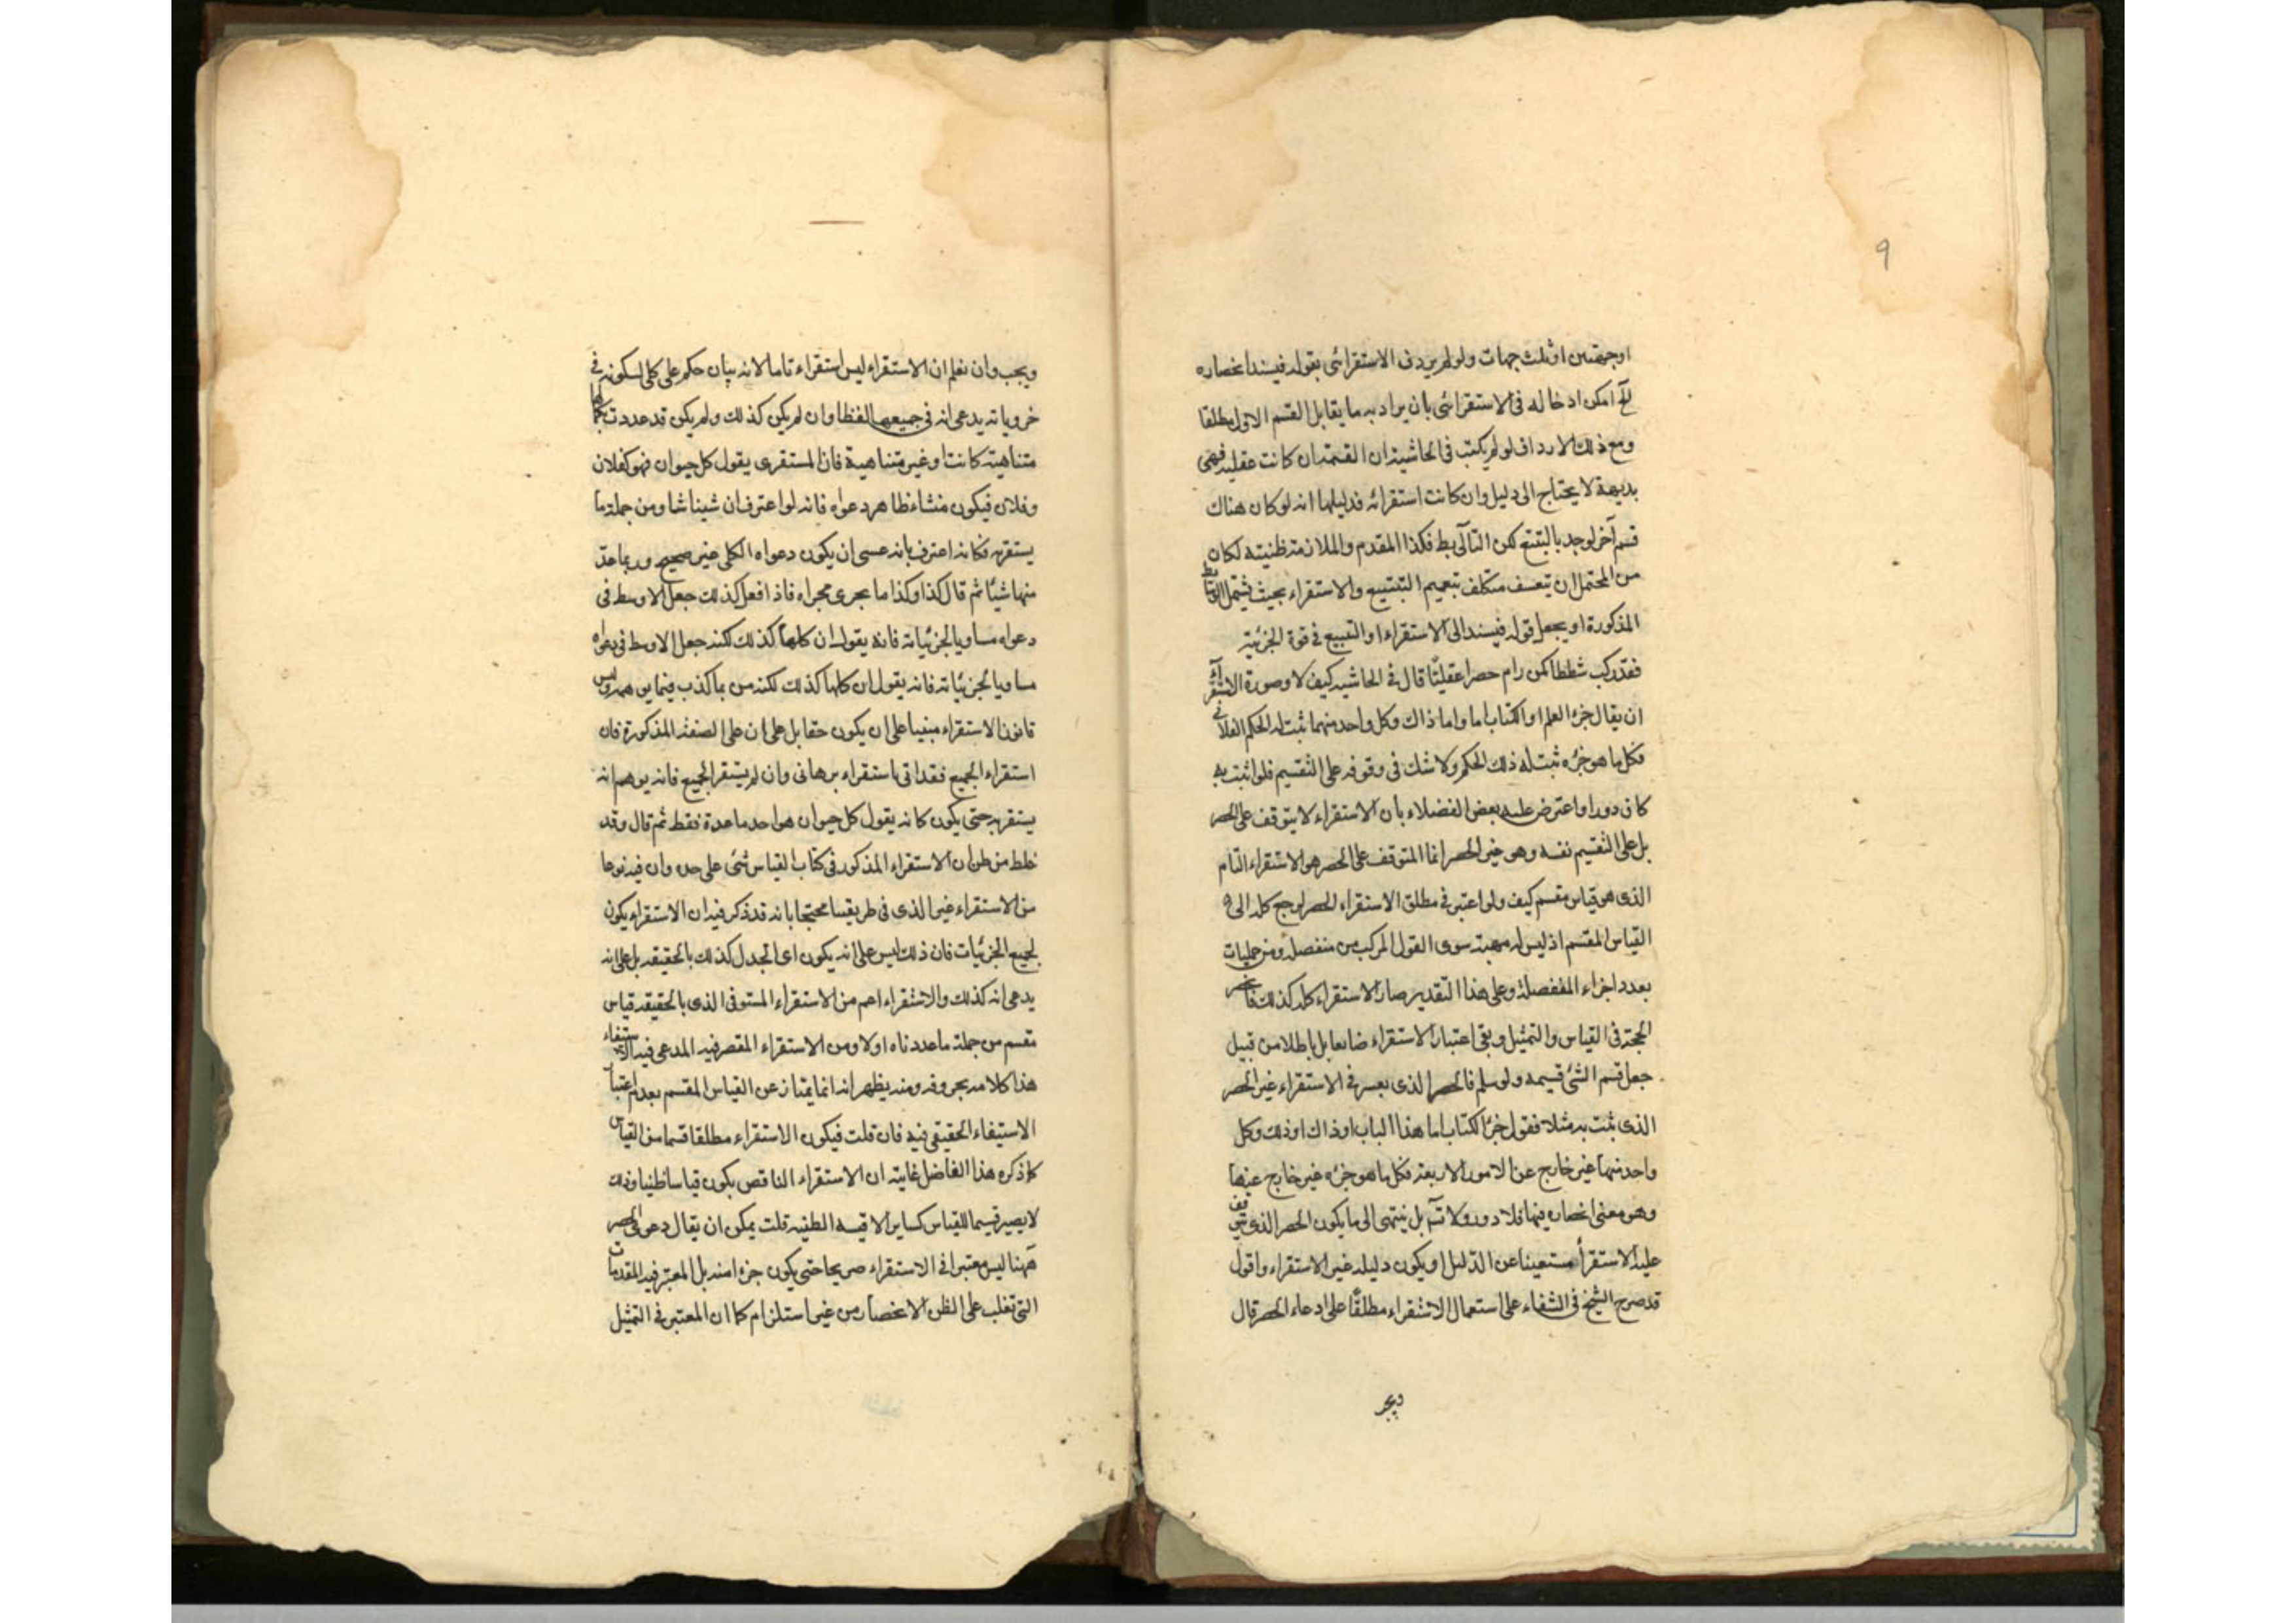 ٩
او جهتين او ثلث جهات ولو لم يردف الاستقرائى بقوله فيسند انحصاره
امكن ادخاله فى الاستقرائى بان يراد به ما يقابل القسم الاول مطلقا
ومع ذلك الارداف لو لم يكتب فى الحاشية ان القسمة ان كانت عقلية فهى
بديهية لا يحتاج الى دليل وان كانت استقرائه فدليلها انه لو كان هناك
قسم آخر لوجد بالتتبع لكن التالى بط فكذا المقدم والملازمة ظنيته لكان
من المحتمل ان يتعسف متكلف بتعميم التتبيع والاستقراء بحيث يشمل
المذكورة او يجعل قوله فيسند الى الاستقراء او التبيع فى قوة الجزئية
فقد ركب شططا كمن رام حصرا عقليّا قال فى الحاشيه كيف لا وصورة الاستقراء
ان يقال جزء العلم او الكتاب اما واما ذاك وكل واحد منهما ثبت له الحكم الفلانى
فكل ما هو جزءه ثبت له ذلك الحكم ولا شك فى وقوفه على التقسيم فلو اثبت به
كان دورا واعترض عليه بعض الفضلاء بان الاستقراء لا يتوقف على الحصر
بل على التقسيم نفسه وهو غير الحصر انما المتوقف على الحصر هو الاستقراء التام
الذى هو قياس مقسم كيف ولو اعتبر فى مطلق الاستقراء الحصر لرجع كله الى
القياس المقسم اذ ليس له مهية سوى القول المركب من منفصلة ومن حمليات
بعدد اجزاء المنفصلة وعلى هذا التقدير صار الاستقراء كله كذلك فانحصر
الحجة فى القياس والتمثيل وبقى اعتبار الاستقراء ضايعا بل باطلا من قبيل
جعل قسم الشئ قسيمه ولو سلم فالحصر الذى يعتبر فى الاستقراء غير الحصر
الذى يثبت به مثلا فقول جزء الكتاب اما هذا الباب او ذاك او ذلك وكل
واحد منهما غير خارج عن الامور الاربعة فكل ما هو جزءه غير خارج عنها
وهو معنى انحصاره فيها فلا دور ولا تم بل ينتهى الى ما يكون الحصر الذى يتوقف
عليه الاستقرأ مستغنيا عن الدليل او يكون دليله غير الاستقراء واقول
قد صرح الشيخ فى الشفاء على استعمال الاستقراء مطلقًا على ادعاء الحصر قال
ويجب
ويجب وان نعلم ان الاستقراء ليس استقراء تاما لانه بيان حكم على كلى لكونه فى
جزوياته يدعى انه فى جميعها لفظا وان لم يكن كذلك ولم يكن قد عددت بكمالها
متناهية كانت او غير متناهية فان المستقرى يقول كل حيوان فهو كفلان
وفلان فيكون منشاء ظاهر دعواه فانه لو اعترف ان شيئا شا ومن جملة ما
يستقريه فكانه اعترف بانه عسى ان يكون دعواه الكلى غير صحيح وربما عدّ
منها شيًا ثم قال كذا وكذا ما يجرى مجراه فاذا فعل كذلك جعل الاوسط فى
دعواه مساويا لجزئياته فانه يقول ان كلها كذلك لكنه جعل الاوسط فى دعواه
مساويا لجزئياته فانه يقول ان كلها كذلك لكنه من بما كذب فيما يوهمه وليس
قانون الاستقراء مبنيا على ان يكون حقا بل على ان على الصفة المذكورة فان
استقراء الجميع فقد اتى باستقراء برهانى وان لم يستقر الجميع فانه يوهم انه
يستقريه حتى يكون كانه يقول كل حيوان هو احد ما عدة فقط ثم قال وقد
غلط من ظن ان الاستقراء المذكور فى كتاب القياس شئ على حده وان فيه نوعا
من الاستقراء غير الذى فى طريقسا محتجا بانه قد ذكر فيه ان الاستقراء يكون
لجميع الجزئيات فان ذلك ليس على انه يكون اى الجدل كذلك بالحقيقة بل على انه
يدعى انه كذلك والاستقراء اعم من الاستقراء المستوفى الذى بالحقيقة قياس
مقسم من جملة ما عددناه اولا ومن الاستقراء المقصر فيه المدعى فيه الاستيفاء
هذا كلامه بحروفه ومنه يظهر انه انما يمتاز عن القياس المقسم بعدم اعتبار
الاستيفاء الحقيقى فيه فان قلت فيكون الاستقراء مطلقا قسما من القياس
كما ذكره هذا الفاضل غايته ان الاستقراء الناقص يكون قياسا ظنيا وذلك
لا يصير قسيما للقياس كساير الاقيسه الظنيه قلت يمكن ان يقال دعوى الحصر
ههنا ليس معتبرا فى الاستقراء صريحا حتى يكون جزءا منه بل المعتبر فيه المقدمات
التى تغلب على الظن الانحصار من غير استلزام كما ان المعتبر فى التمثيل